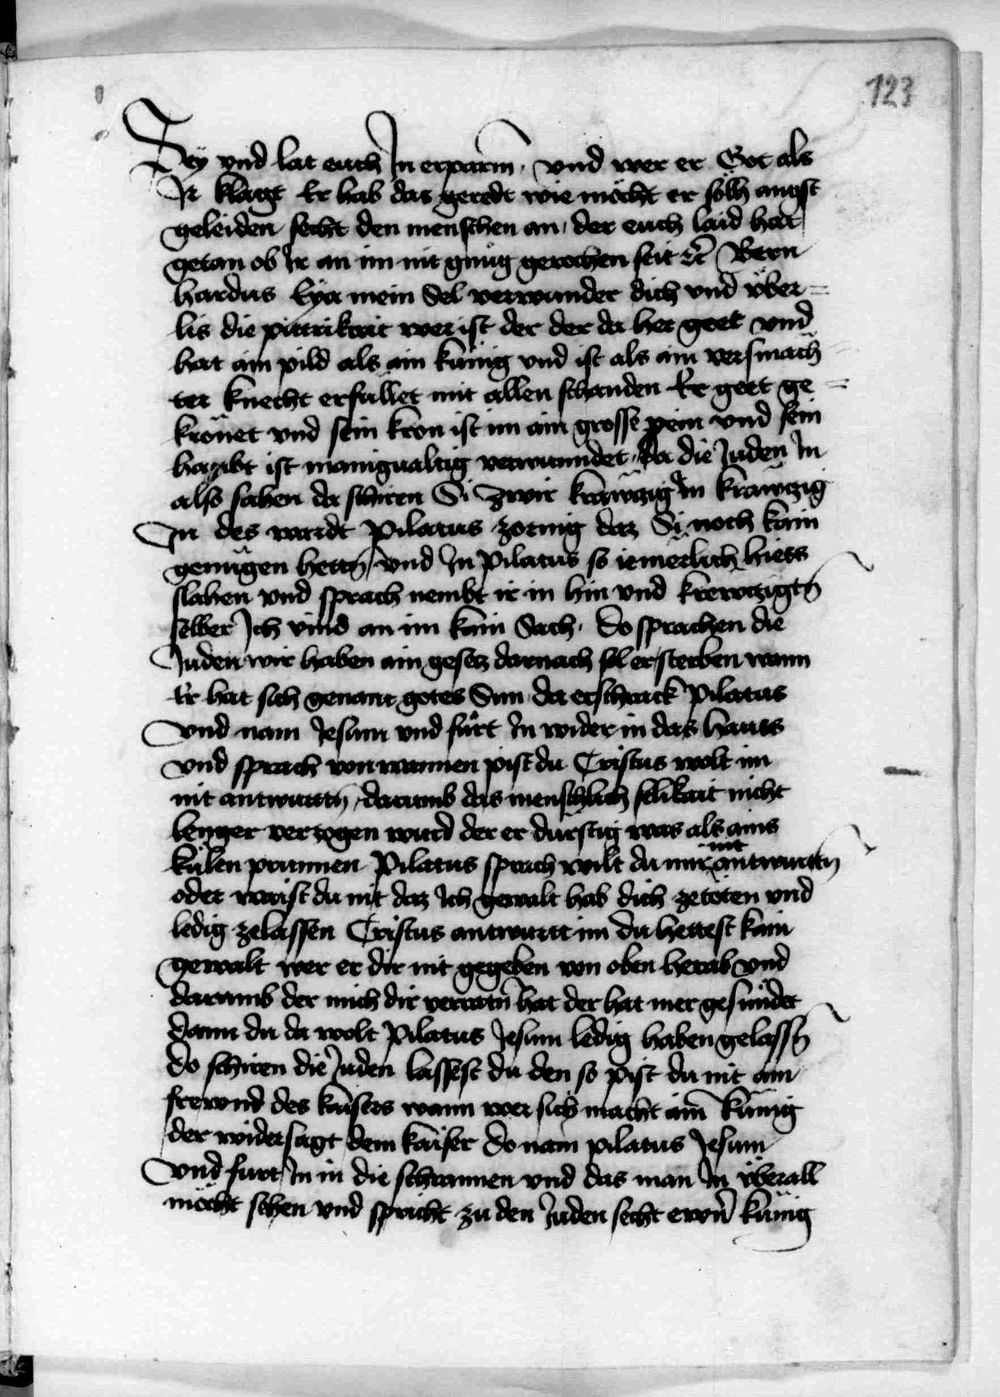 123
Sey vnd lat euch In erparm̄ · vnd wer er Got als
Ir klagt Er hab das geredt wie möcht er sölh angst
geleiden secht den menschen an · der euch laid hat
getan ob Ir an im nit gnüg gerochen seit Bern
hardus Eya mein Sel verwunder dich vnd vber=
lis die wer ist der der da her geet vnd
hat ain pild als ain künig vnd ist als ain versmäch
ter knecht erfüllet mit allen schanden Er geet ge=
krönet vnd sein kron ist im ain grosse pein vnd sein
hawbt ist manigualtig verwundet · Da die Juden In
also sahen da schiren Si zwir kräwtzig In kräwtzig
In des wardt Pilatus zornig daz Si noch kain
genügen hettn̄ vnd In Pilatus so iemerlich hiess
slahen vnd sprach nembt ir in hin vnd krewtzigtn̄
selber Ich vind an im kain Sach · do sprachen die
Juden wir haben ain gesetz darnach sol er sterben wann
Er hat sich genant gotes Sun · da erschrack Pilatus
vnd nam Jesum vnd fürt In wider in das hauss
vnd sprach von wannen pist du Cristus wolt im
nit antwurtn̄ · darumb das menschlich selikait nicht
lenger verzogen wurd der er dürstig was als ains
külen prunnen Pilatus sprach wilt du mir nit antwurtn̄
oder waist du nit daz Ich gewalt hab dich zetöten vnd
ledig zelassen Cristus antwurtt im du hettest kain
gewalt wer er dir nit gegeben von oben herab vnd
darumb der mich dir verratn̄ hat der hat mer gesündet
dann du da wolt Pilatus Jesum ledig haben gelassn̄
do schiren die Juden lassest du den so pist du nit ain
frewnd des kaisers wann wer sich macht aim̄ künig
der widersagt dem kaiser do nam pilatus Jesum
vnd furt In in die schrannen vnd das man In vberall
möcht sehen vnd spricht zu den Juden secht ewrn̄ künig